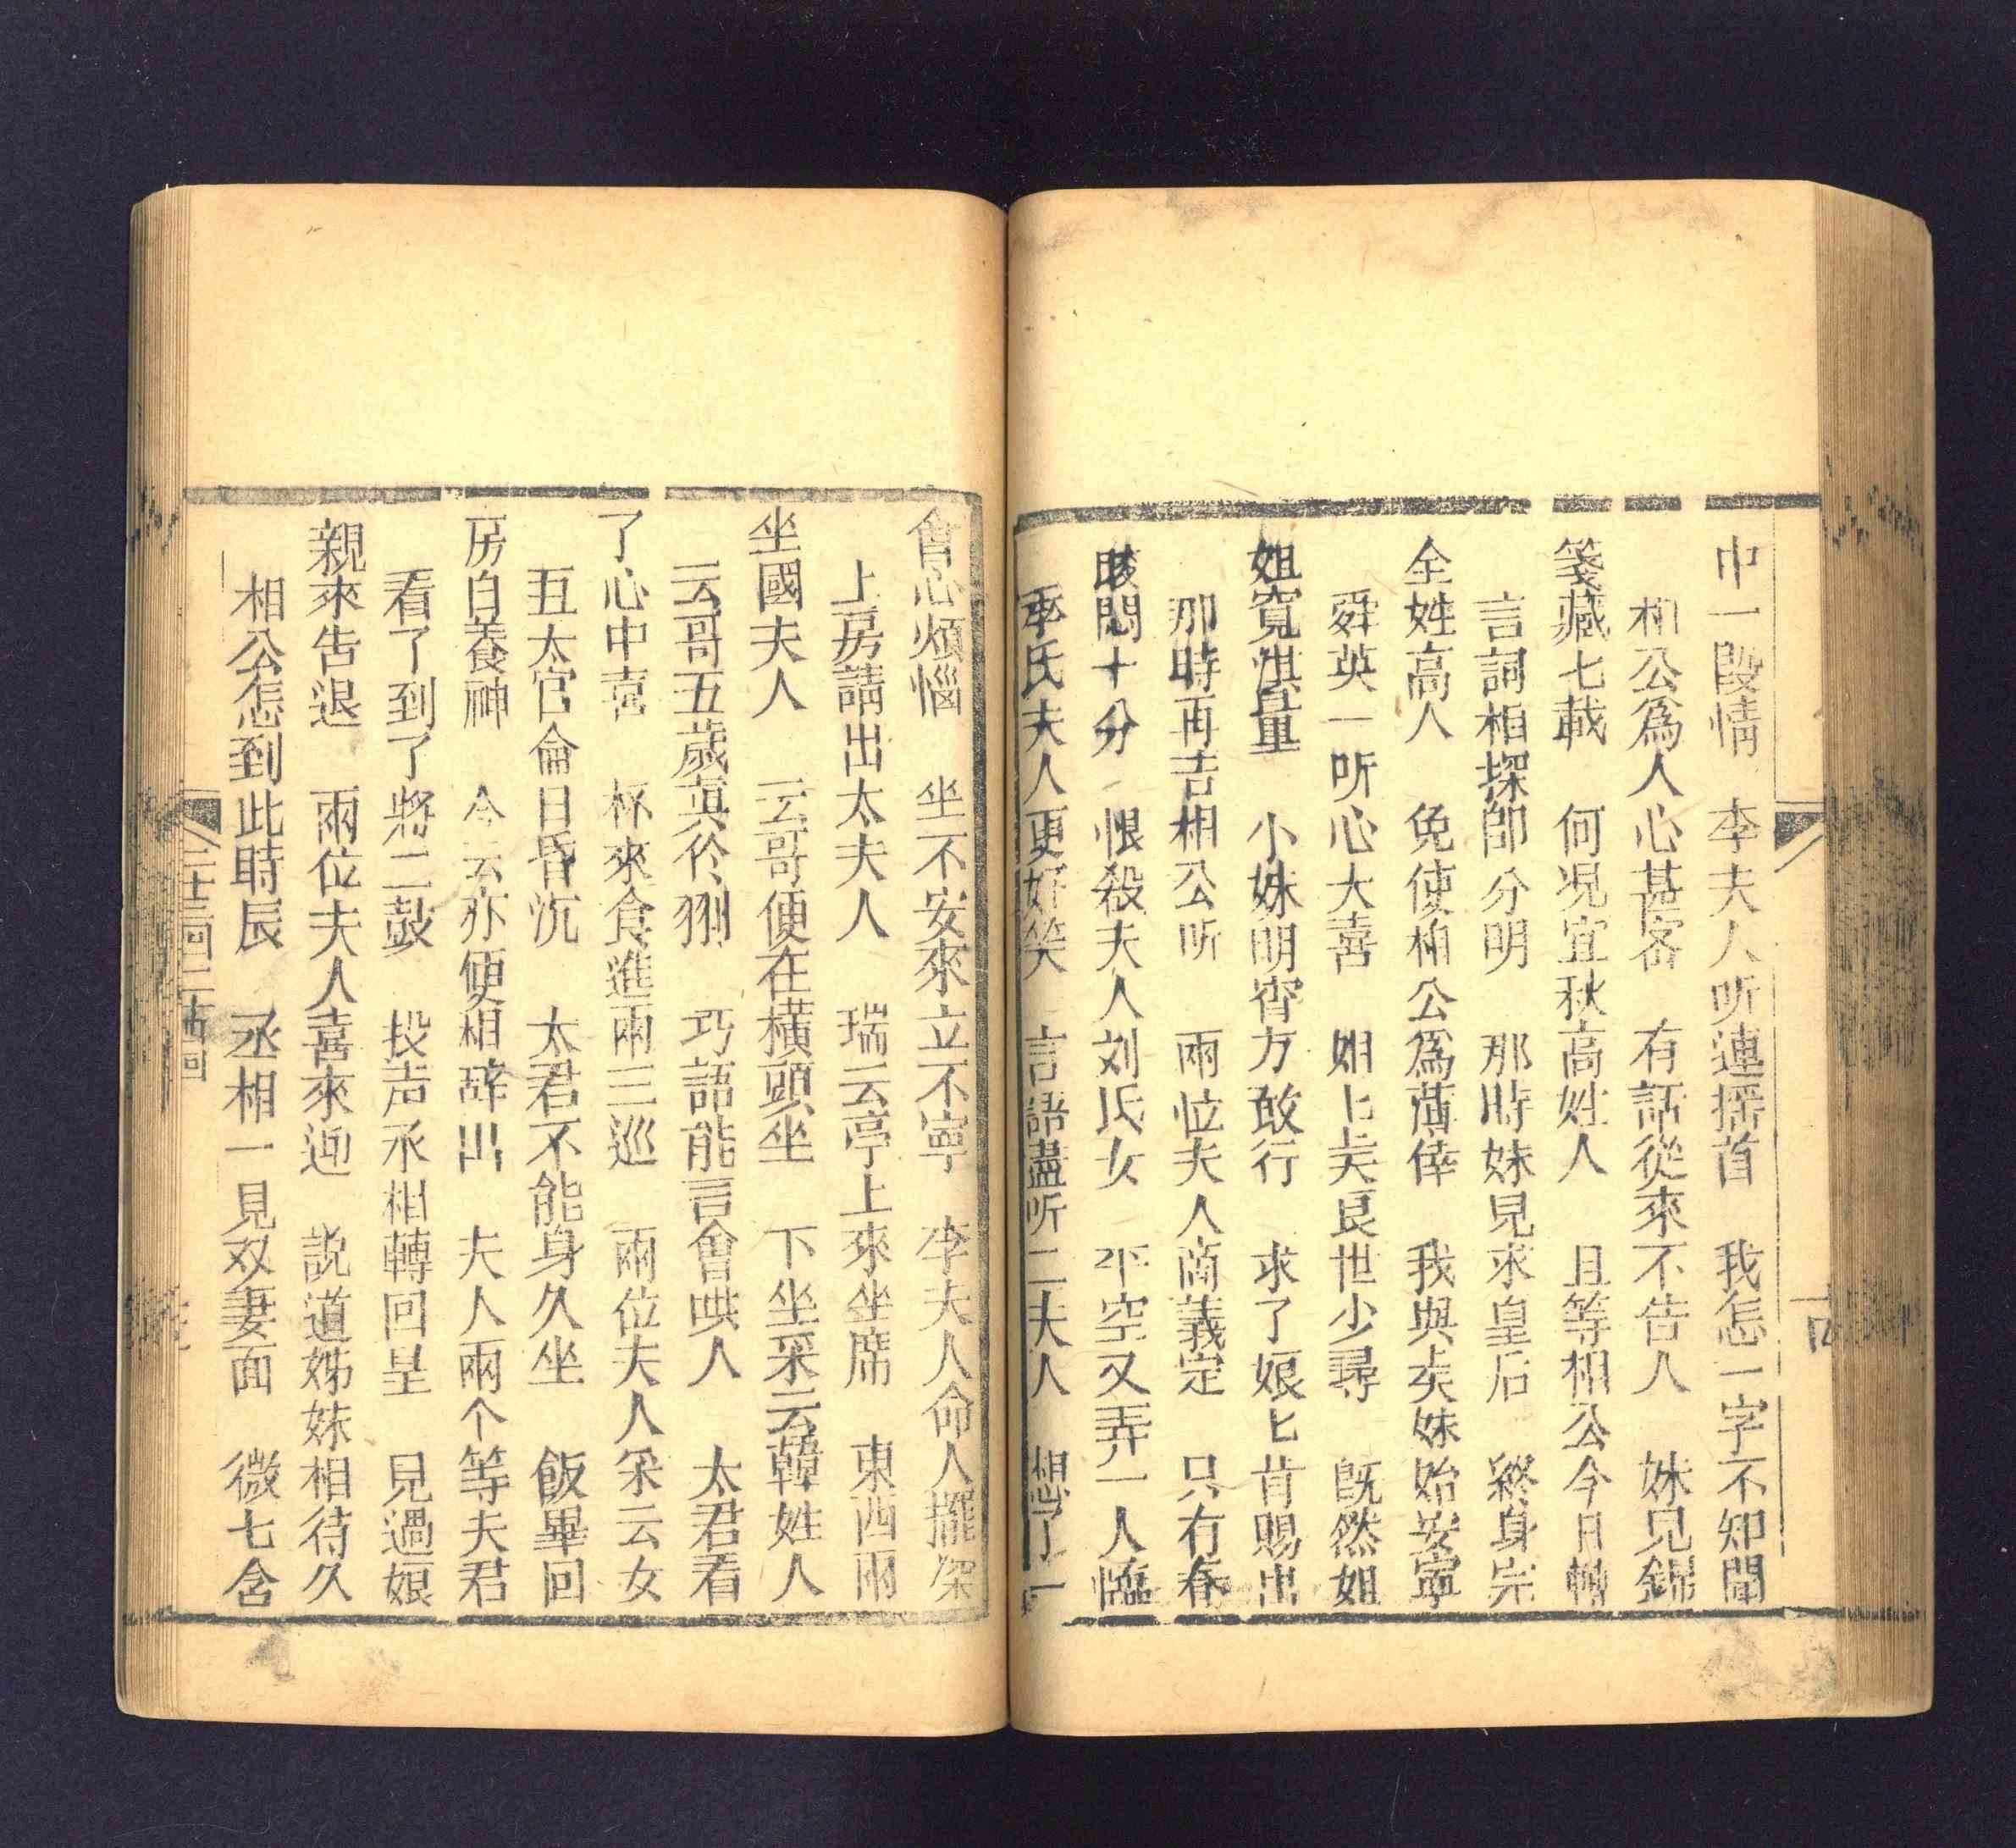 中一段情　李夫人听連搖首　我怎一字不知聞
相公爲人心甚密　有話從來不告人　妹兄錦
箋藏七載　何况宜秋高姓人　且等相公今日轉
言詞相探即分明　那時妹見求皇后　終身完
全姓高人　免使相公爲薄倖　我與美妹始安寧
舜英一听心大喜　姐上美良世少尋　既然姐
姐寬洪量　小妹明宵方敢行　求了娘匕肯賜出
那時再吉相公听　兩位夫人商義定　只有春
悶十分　恨殺夫人刘氏女　平空又弄一人臨
李氏夫人更好笑　言語盡听二夫人　想了一
會心煩惱　坐不安來立不寧　李夫人命人擺
上房請出太夫人　瑞云亭上來坐席　東西兩
坐國夫人　云哥便在橫頭坐　下坐采云韓姓人
云哥五歲真伶俐　巧語能言會哄人　太君看
了心中喜　杯來食進兩三巡　兩位夫人采云女
五太官侖日昏沉　太君不能身久坐　飯畢回
房自養神　今云亦便相辞出　夫人兩个等夫君
看了到了將二鼓　投声丞相轉回呈　見過娘
親來告退　兩位夫人喜來迎　説道姊妹相待久
相公怎到此時辰　丞相一見双妻面　微七含
二十三回二十四回